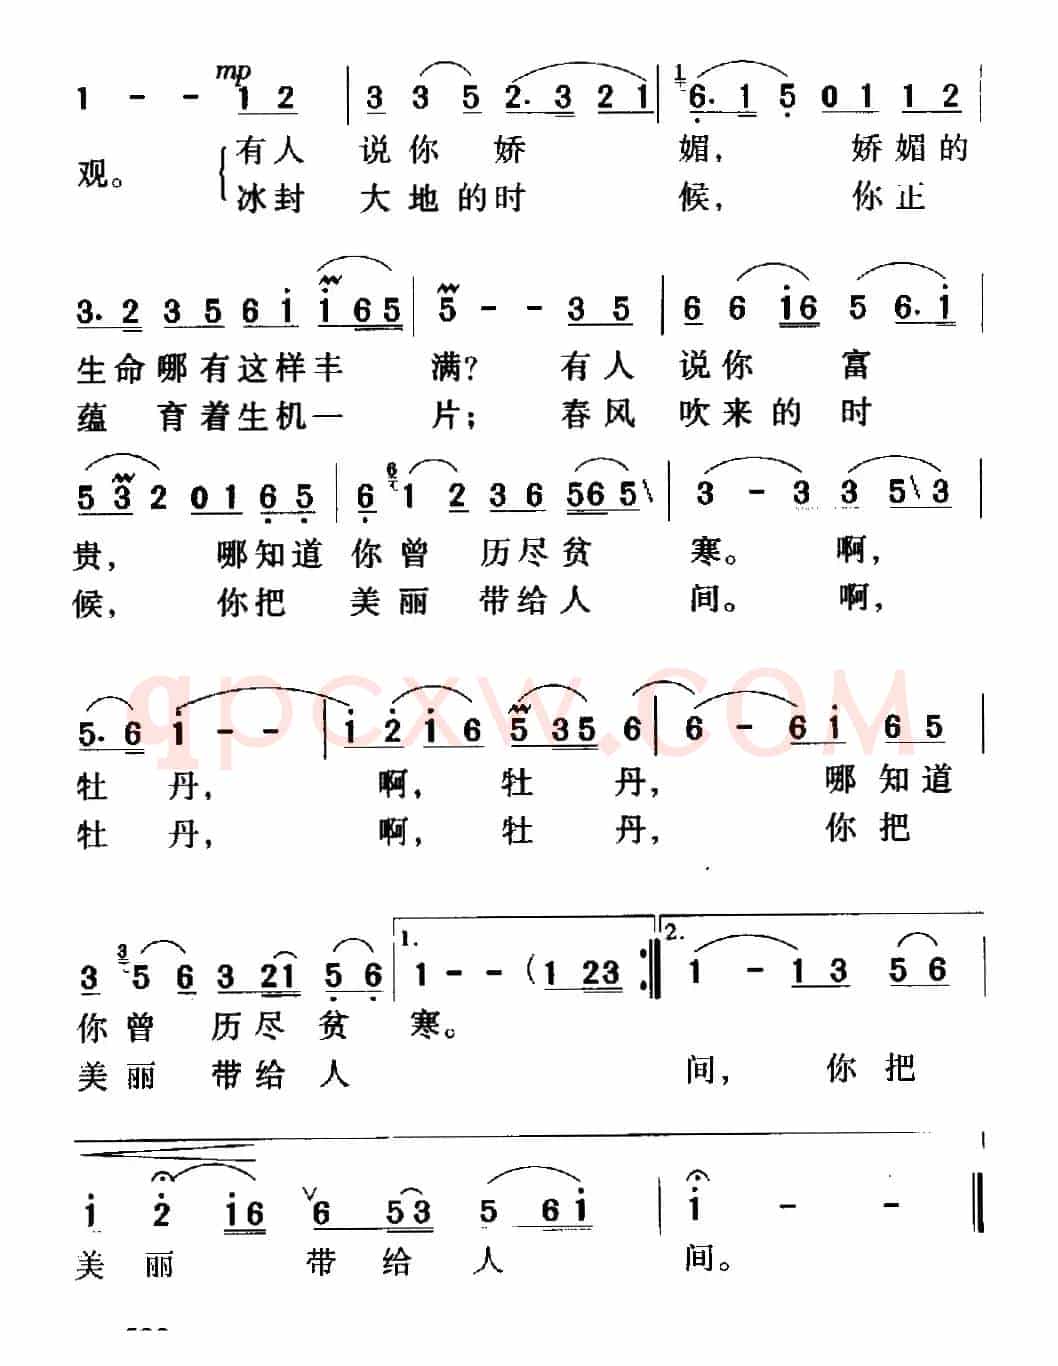 mp
1 - - 1 2 | 3 3 5 2. 3 2 1 | 1 6. 1 5 0 1 1 2 |
观。 有人 说你 娇 媚, 娇媚的
冰封 大地的时 候, 你正
3. 2 3 5 6 i i 6 5 | 5 - - 3 5 | 6 6 i6 5 6. i |
生命哪有这样丰 满? 有人 说你 富
蕴 育着生机一 片; 春风 吹来的 时
5 3 2 0 1 6 5 | 6 6 1 2 3 6 56 5 \ | 3 - 3 3 5 \ 3 |
贵, 哪知道 你曾 历尽贫 寒。 啊,
候, 你把 美丽 带给人 间。 啊,
5. 6 i - - | i 2 i 6 5 35 6 | 6 - 6 i 6 5 |
牡 丹, 啊, 牡 丹, 哪知道
牡 丹, 啊, 牡 丹, 你把
3 3 5 6 3 21 5 6 | 1. 1 - - ( 1 23 :| 2. 1 - 1 3 5 6 |
你曾 历尽贫 寒。
美丽 带给人 间, 你把
i 2 i6 ∨ 6 53 5 6 i | i - - ||
美 丽 带 给 人 间。
qpcxw.COM